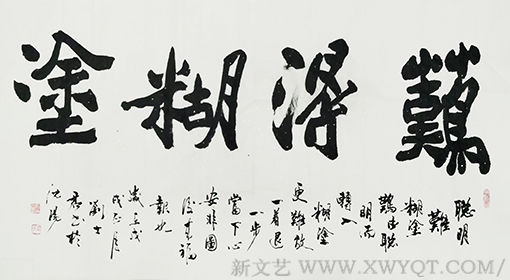 難得糊塗
聰明
難
糊塗
難由聰
明而
轉入
糊塗
更難放
一着退
一步
當下心
安非圖
後來福
報也
劉士
書於
沈陽
新文艺 / WWW.XWYCN.COM/